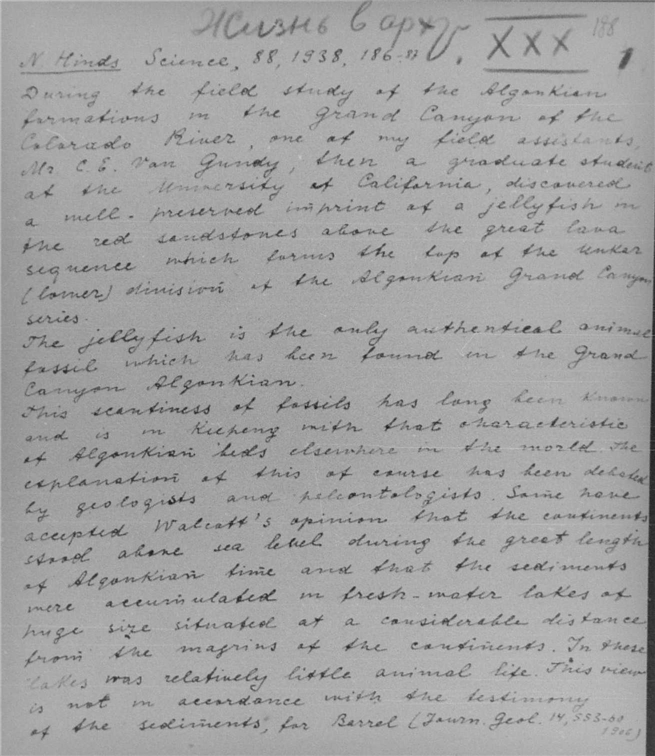 Жизнь в арх.
XXX 188
1
N. Hinds Science, 88, 1938, 186-87
During the field study of the Algonkian
formations in the Grand Canyon of the
Colorado River, one of my field assistants,
Mr. C. E. Van Gundy, then a graduate student
at the University of California, discovered
a well-preserved imprint of a jellyfish in
the red sandstones above the great lava
sequence which forms the top of the Unkar
(lower) division of the Algonkian Grand Canyon
series.
The jellyfish is the only authentical animal
fossil which has been found in the Grand
Canyon Algonkian.
This scantiness of fossils has long been known
and is in keepeng with that characteristic
of Algonkian beds elsewhere in the world. The
explanation of this of course has been debated
by geologists and paleontologists. Some have
accepted Walcott's opinion that the continents
stood above sea level during the great length
of Algonkian time and that the sediments
were accumulated in fresh-water lakes of
huge size situated at a considerable distance
from the magrins of the continents. In these
lakes was relatively little animal life. This view
is not in accordance with the testimony
of the sediments, for Barrel (Journ. Geol. 14, 553-60
1906)